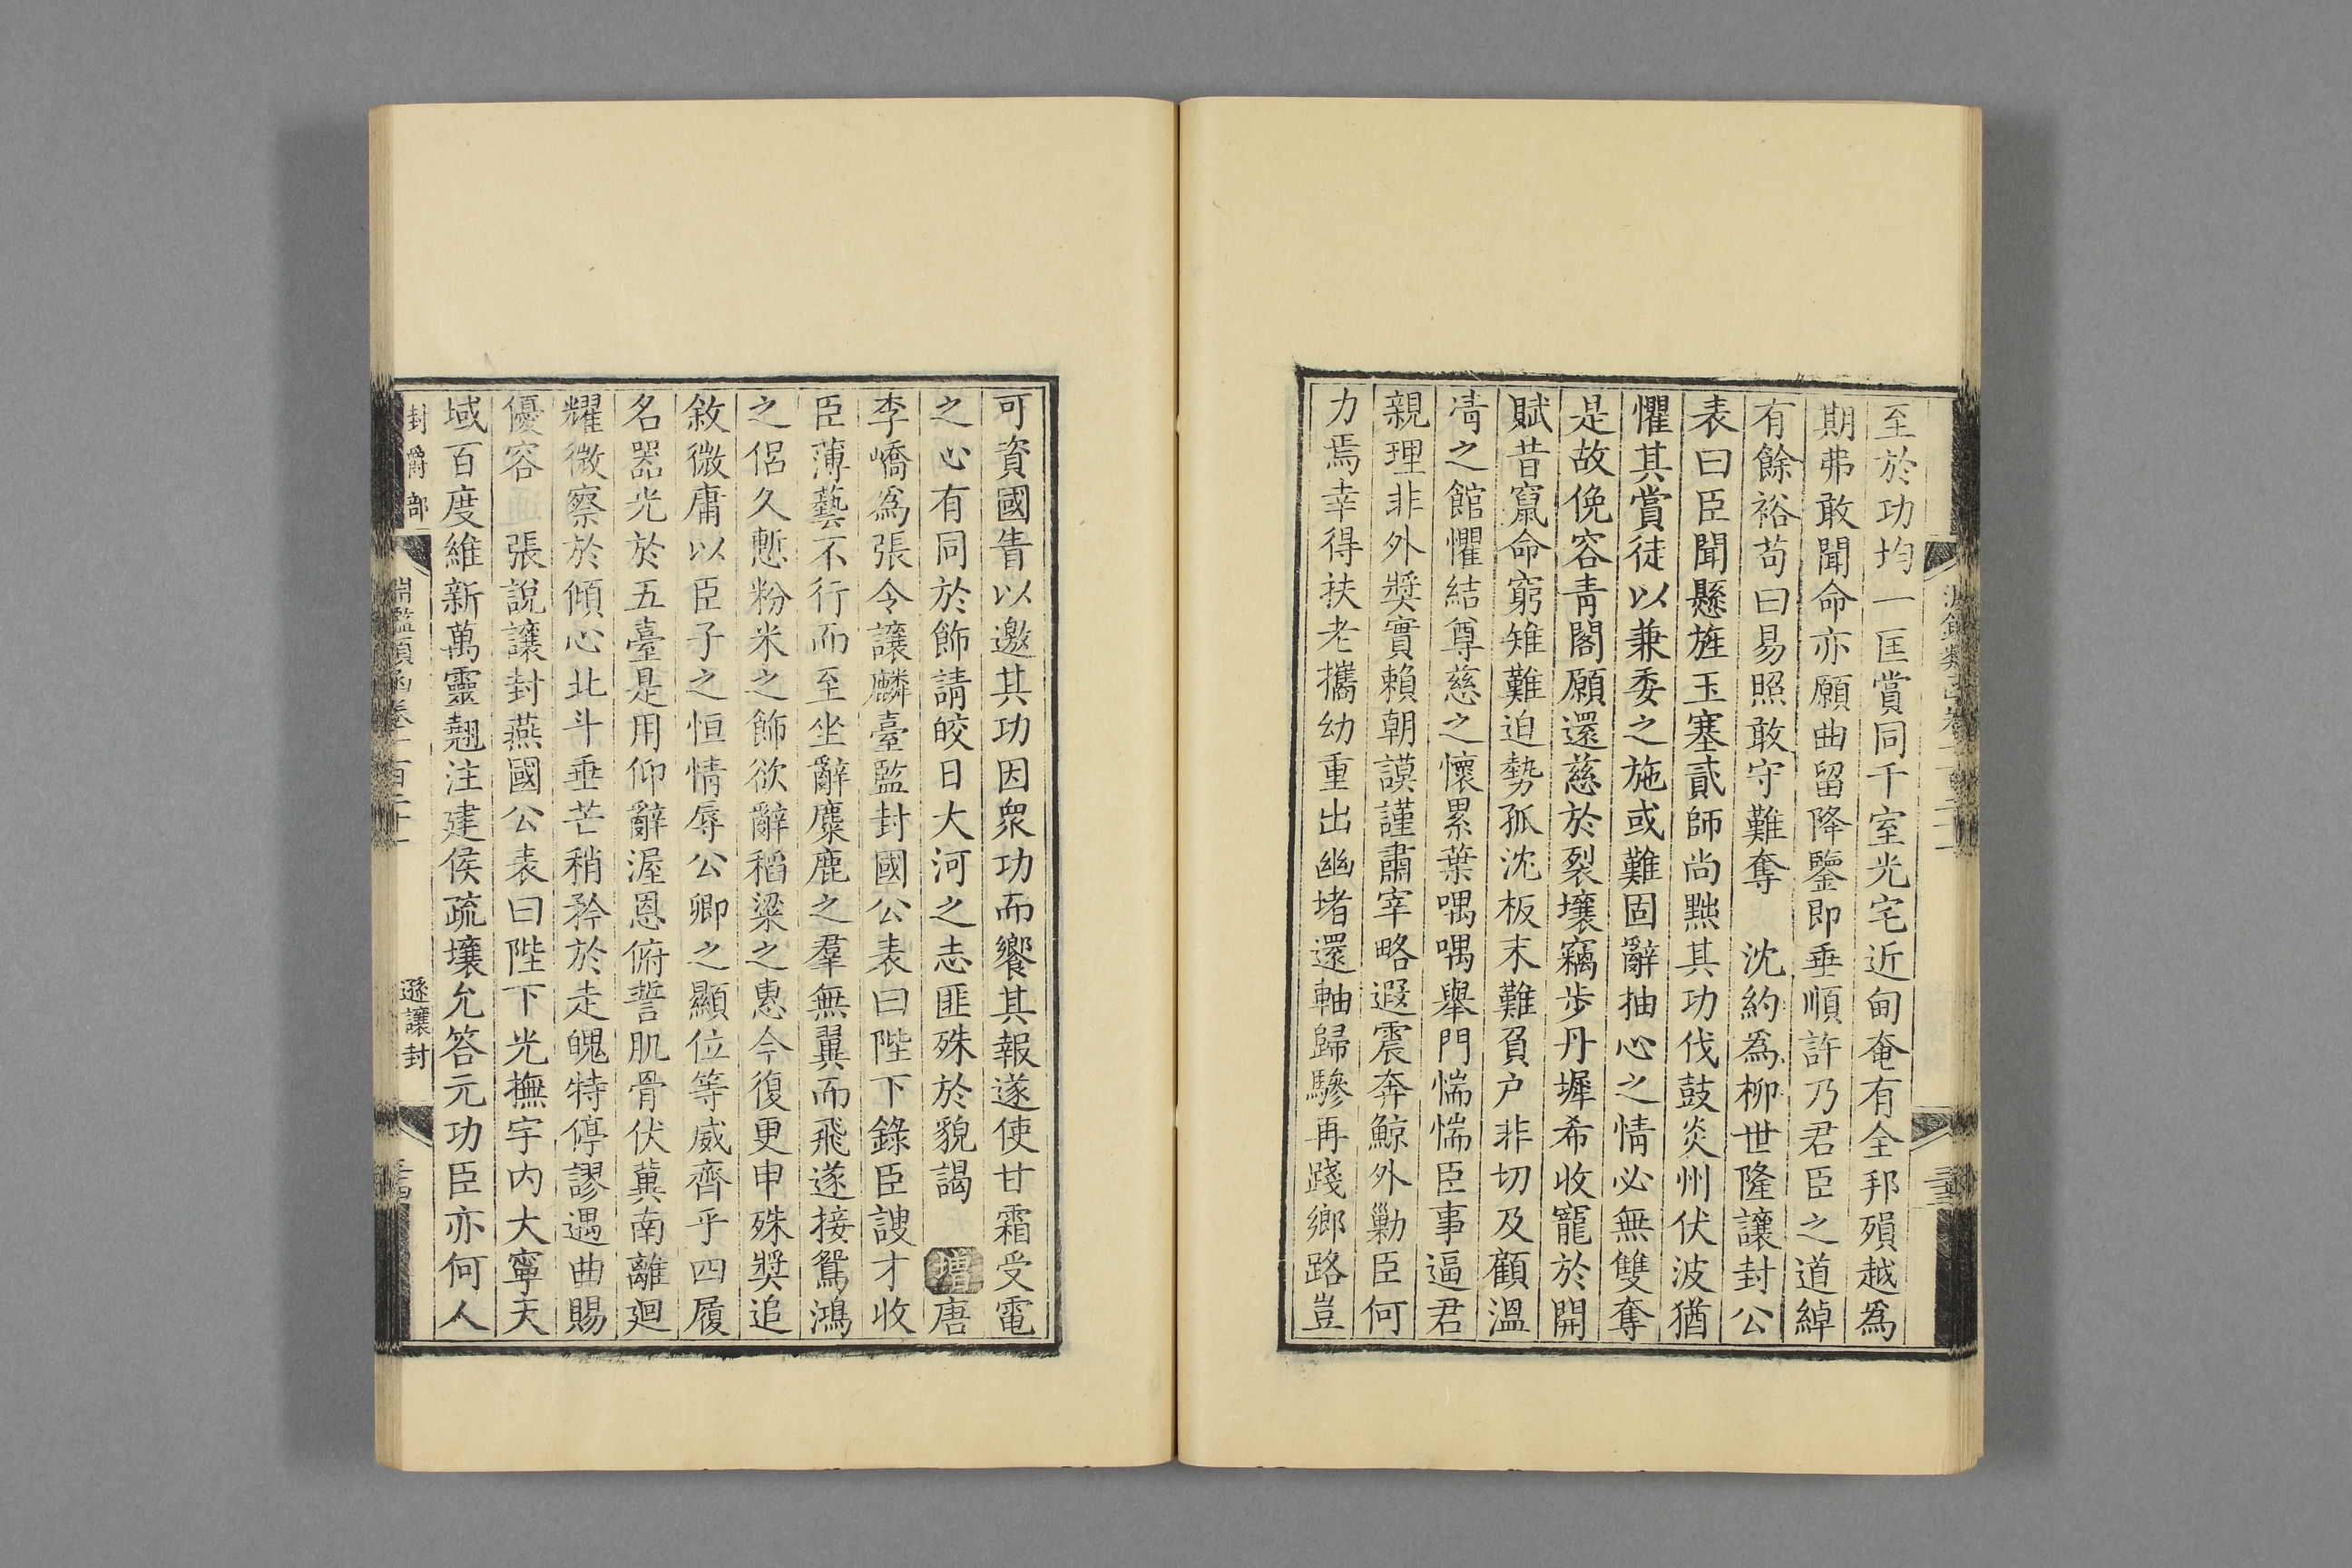 至於功均一匡賞同千室光宅近甸奄有全邦殞越爲
期弗敢聞命亦願曲留降鑒即垂順許乃君臣之道綽
有餘裕苟曰易照敢守難奪　沈約爲柳世隆讓封公
表曰臣聞懸旌玉塞貳師尚黜其功伐鼓炎州伏波猶
懼其賞徒以兼委之施或難固辭抽心之情必無雙奪
是故俛容青閣願還慈於裂壤竊步丹墀希收寵於開
賦昔竄命窮雉難迫勢孤沈板末難負户非切及顧溫
凊之館懼結尊慈之懷累葉喁喁舉門惴惴臣事逼君
親理非外奬實賴朝謨謹肅宰略遐震奔鯨外勦臣何
力焉幸得扶老攜幼重出幽堵還軸歸驂再踐鄉路豈
可資國眚以邀其功因衆功而饗其報遂使甘霜受電
之心有同於飾請皎日大河之志匪殊於貌謁　增唐
李嶠爲張令讓麟臺監封國公表曰陛下錄臣謏才收
臣薄藝不行而至坐辭麋鹿之羣無翼而飛遂接鴛鴻
之侶久慙粉米之飾欲辭稻粱之惠今復更申殊奬追
敘微庸以臣子之恒情辱公卿之顯位等威齊乎四履
名器光於五臺是用仰辭渥恩俯誓肌骨伏冀南離迴
耀微察於傾心北斗垂芒稍矜於走魄特停謬遇曲賜
優容　張說讓封燕國公表曰陛下光撫宇内大寧天
域百度維新萬靈翹注建侯疏壤允答元功臣亦何人
封爵部　淵鑑類函卷一百二十一　遜讓封